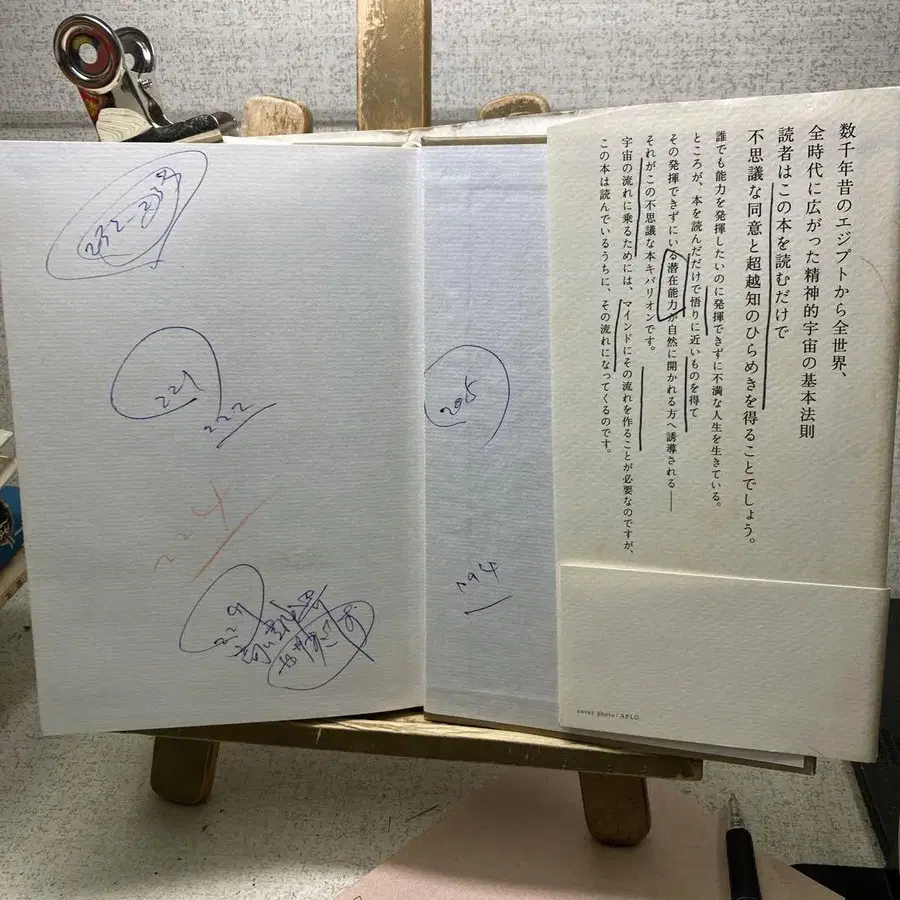 数千年昔のエジプトから全世界、
全時代に広がった精神的宇宙の基本法則
読者はこの本を読むだけで
不思議な同意と超越知のひらめきを得ることでしょう。
誰でも能力を発揮したいのに発揮できずに不満な人生を生きている。
ところが、本を読んだだけで悟りに近いものを得て
その発揮できずにいる潜在能力が自然に開かれる方へ誘導される——
それがこの不思議な本キバリオンです。
宇宙の流れに乗るためには、マインドにその流れを作ることが必要なのですが、
この本は読んでいるうちに、その流れになってくるのです。
cover photo : AFLO
205
232-239
221
222
224
229